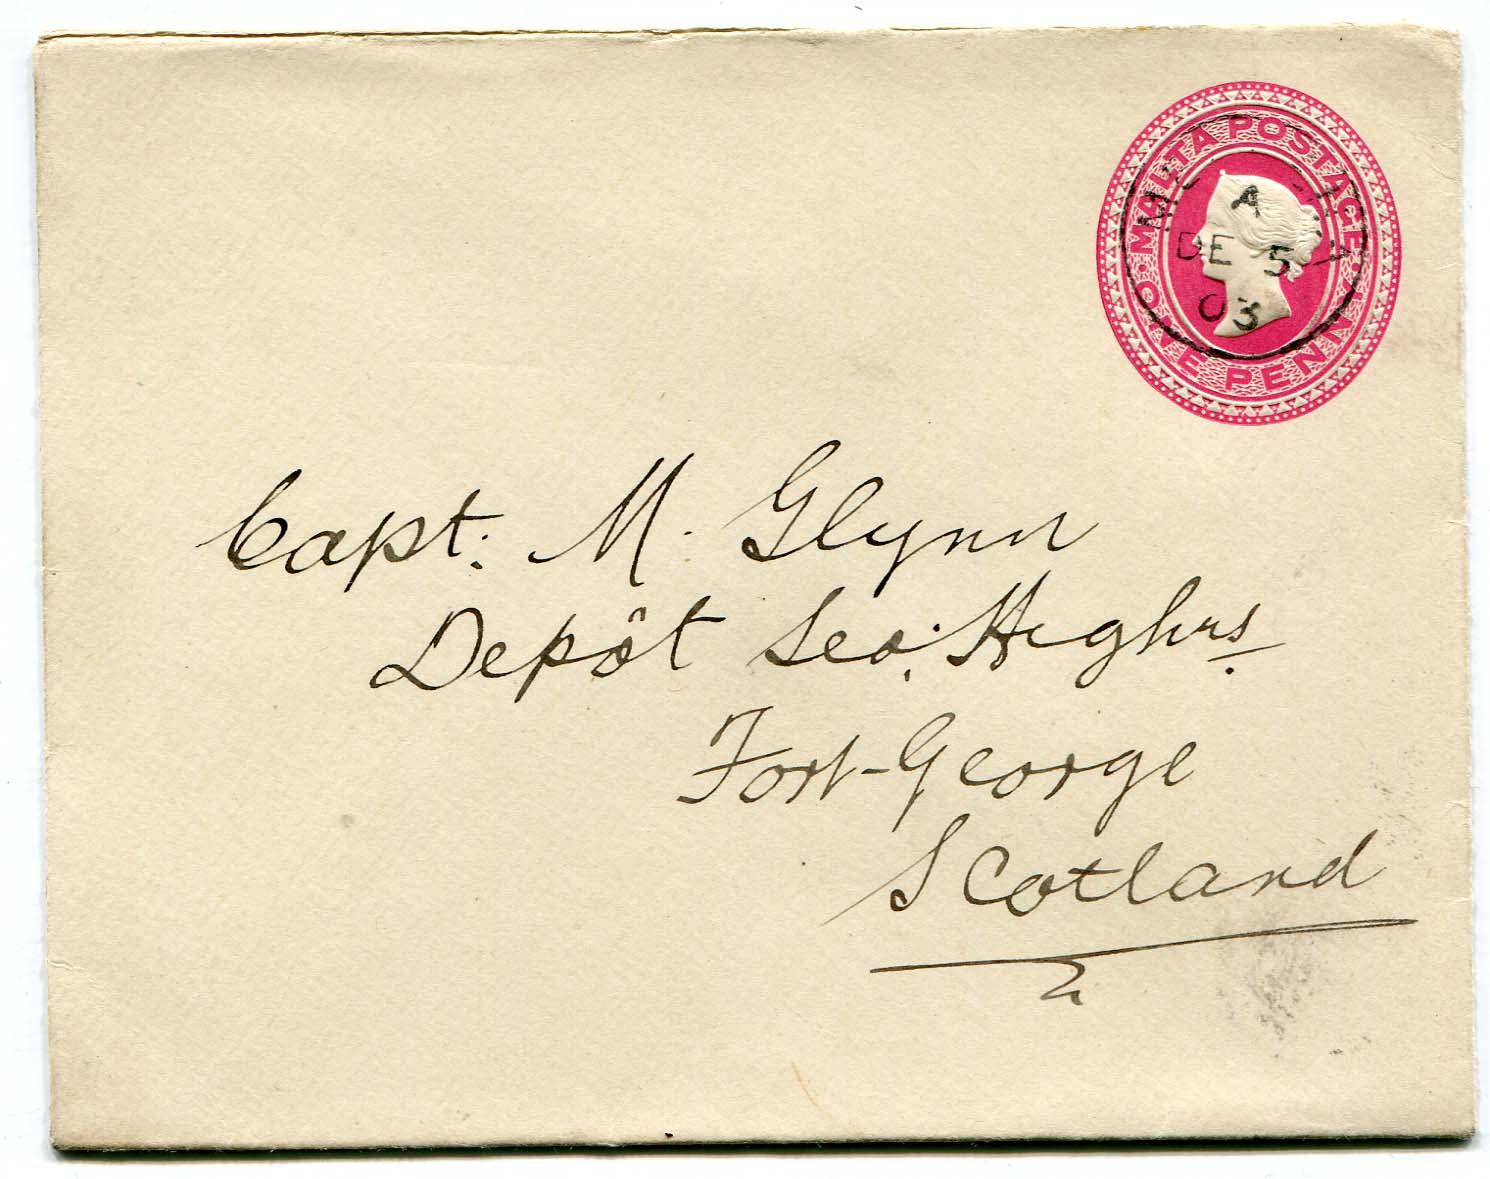 MALTA POSTAGE
ONE PENNY
A
DE 5
03
Capt. M. Glynn
Depôt Sea: Highrs.
Fort-George
Scotland